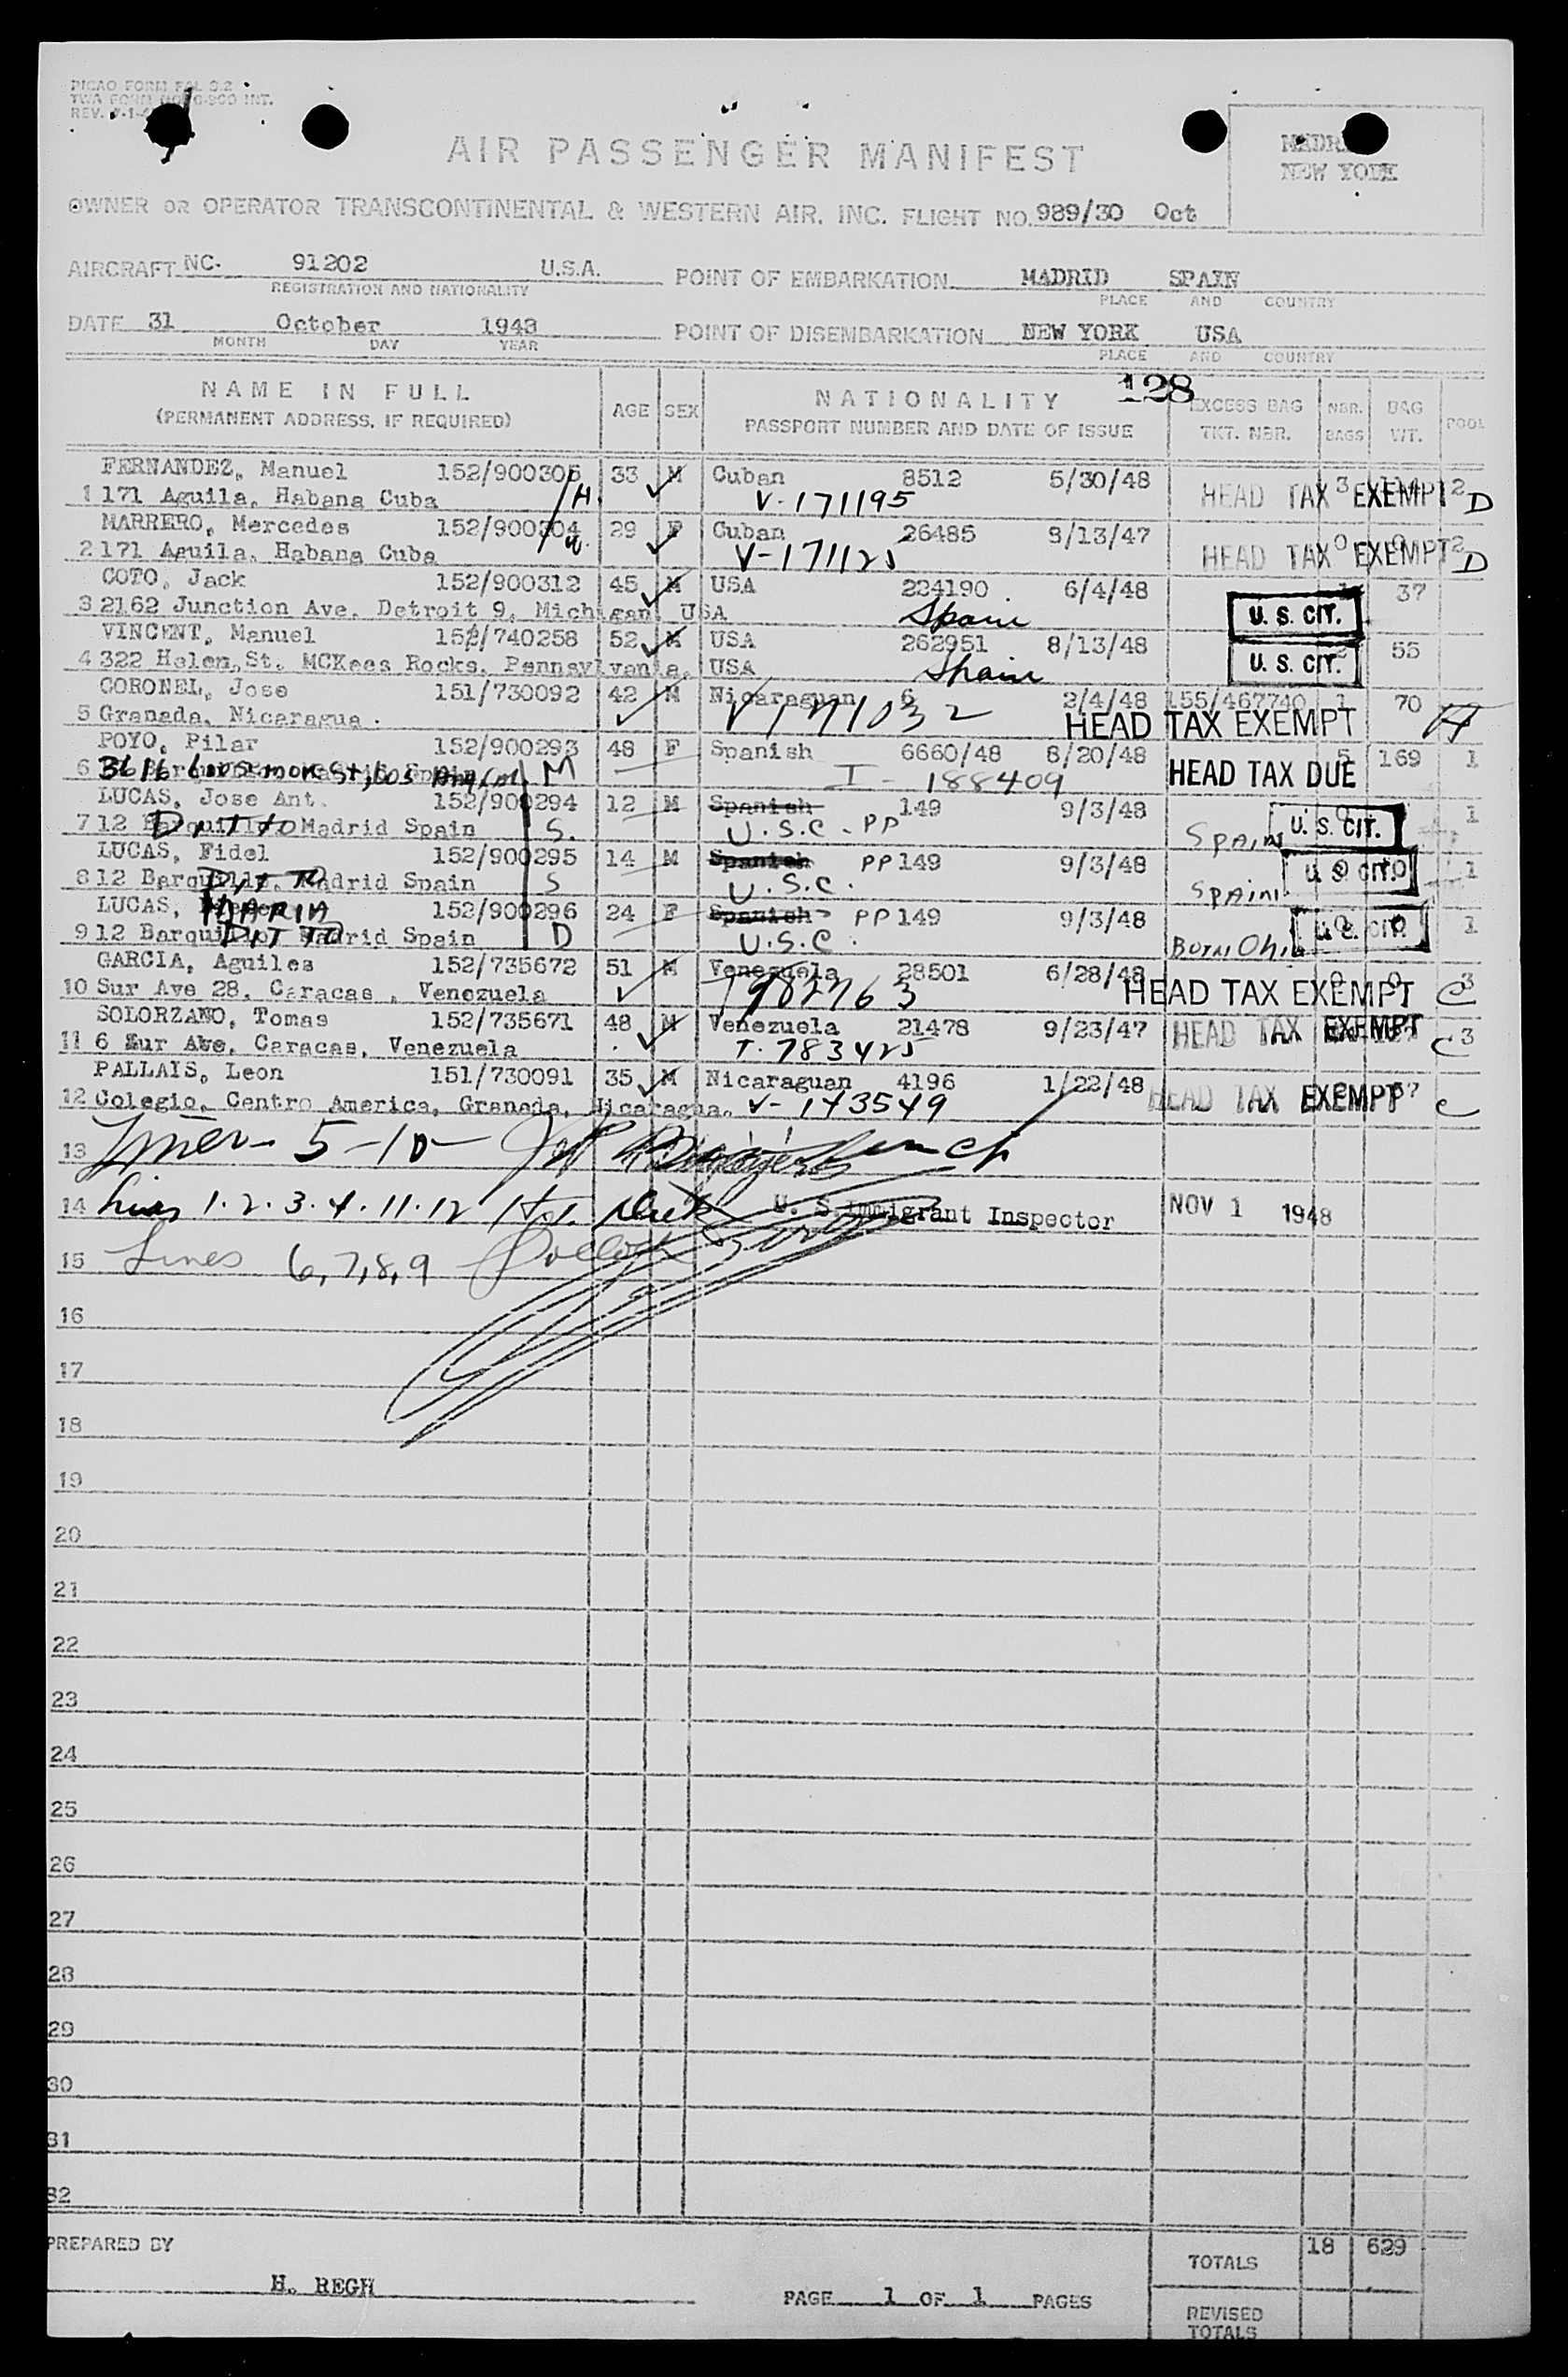 PICAO FORM FAL S.2
TWA FORM INT.
REV.
AIR PASSENGER MANIFEST
NEW YORK
OWNER OR OPERATOR TRANSCONTINENTAL & WESTERN AIR, INC. FLIGHT NO. 989/30 Oct
AIRCRAFT NC. 91202 U.S.A. POINT OF EMBARKATION MADRID SPAIN
REGISTRATION AND NATIONALITY PLACE AND COUNTRY
DATE 31 October 1948 POINT OF DISEMBARKATION NEW YORK USA
MONTH DAY YEAR PLACE AND COUNTRY
128
NAME IN FULL AGE SEX NATIONALITY EXCESS BAG NBR. BAG POOL
(PERMANENT ADDRESS, IF REQUIRED) PASSPORT NUMBER AND DATE OF ISSUE TKT. NBR. BAGS WT.
FERNANDEZ, Manuel 152/900305 33 M Cuban 8512 5/30/48
1 171 Aguila, Habana Cuba H. V-171195 HEAD TAX 3 EXEMPT 2 D
MARRERO, Mercedes 152/900304 29 F Cuban 26485 8/13/47
2 171 Aguila, Habana Cuba W. V-171125 HEAD TAX 0 EXEMPT 2 D
COTO, Jack 152/900312 45 M USA 224190 6/4/48 1 37
3 2162 Junction Ave. Detroit 9, Michigan USA Spain U. S. CIT.
VINCENT, Manuel 152/740258 52 M USA 262951 8/13/48 55
4 322 Helen St. MCKees Rocks, Pennsylvania, USA Spain U. S. CIT.
CORONEL, Jose 151/730092 42 M Nicaraguan 6 2/4/48 155/467740 1 70
5 Granada, Nicaragua. V171032 HEAD TAX EXEMPT
POYO, Pilar 152/900293 48 F Spanish 6660/48 8/20/48 5 169 1
6 3616 St, Los M I-188409 HEAD TAX DUE
LUCAS, Jose Ant. 152/900294 12 M Spanish 149 9/3/48 0 1
7 12 Barquillo Ditto Madrid Spain S. U.S.C. PP Spain U. S. CIT.
LUCAS, Fidel 152/900295 14 M Spanish PP 149 9/3/48 0 0 1
8 12 Barquillo, Ditto Madrid Spain S U.S.C. Spain U. S. CIT.
LUCAS, MARIA 152/900296 24 F Spanish PP 149 9/3/48 0 0 1
9 12 Barquillo, Ditto Madrid Spain D U.S.C. Born Ohio U. S. CIT.
GARCIA, Aguiles 152/735672 51 M Venezuela 28501 6/28/48 0 0 3
10 Sur Ave 28, Caracas, Venezuela 782763 HEAD TAX EXEMPT C
SOLORZANO, Tomas 152/735671 48 M Venezuela 21478 9/23/47 3
11 6 Sur Ave. Caracas, Venezuela T. 783425 HEAD TAX EXEMPT C
PALLAIS, Leon 151/730091 35 M Nicaraguan 4196 1/22/48
12 Colegio, Centro America, Granada, Nicaragua. V-143549 HEAD TAX EXEMPT C
13 5-10
14 Lines 1.2.3.4.11.12 U. S. Immigrant Inspector NOV 1 1948
15 Lines 6,7,8,9
16
17
18
19
20
21
22
23
24
25
26
27
28
29
30
31
32
PREPARED BY H. REGH
TOTALS 18 629
PAGE 1 OF 1 PAGES
REVISED TOTALS